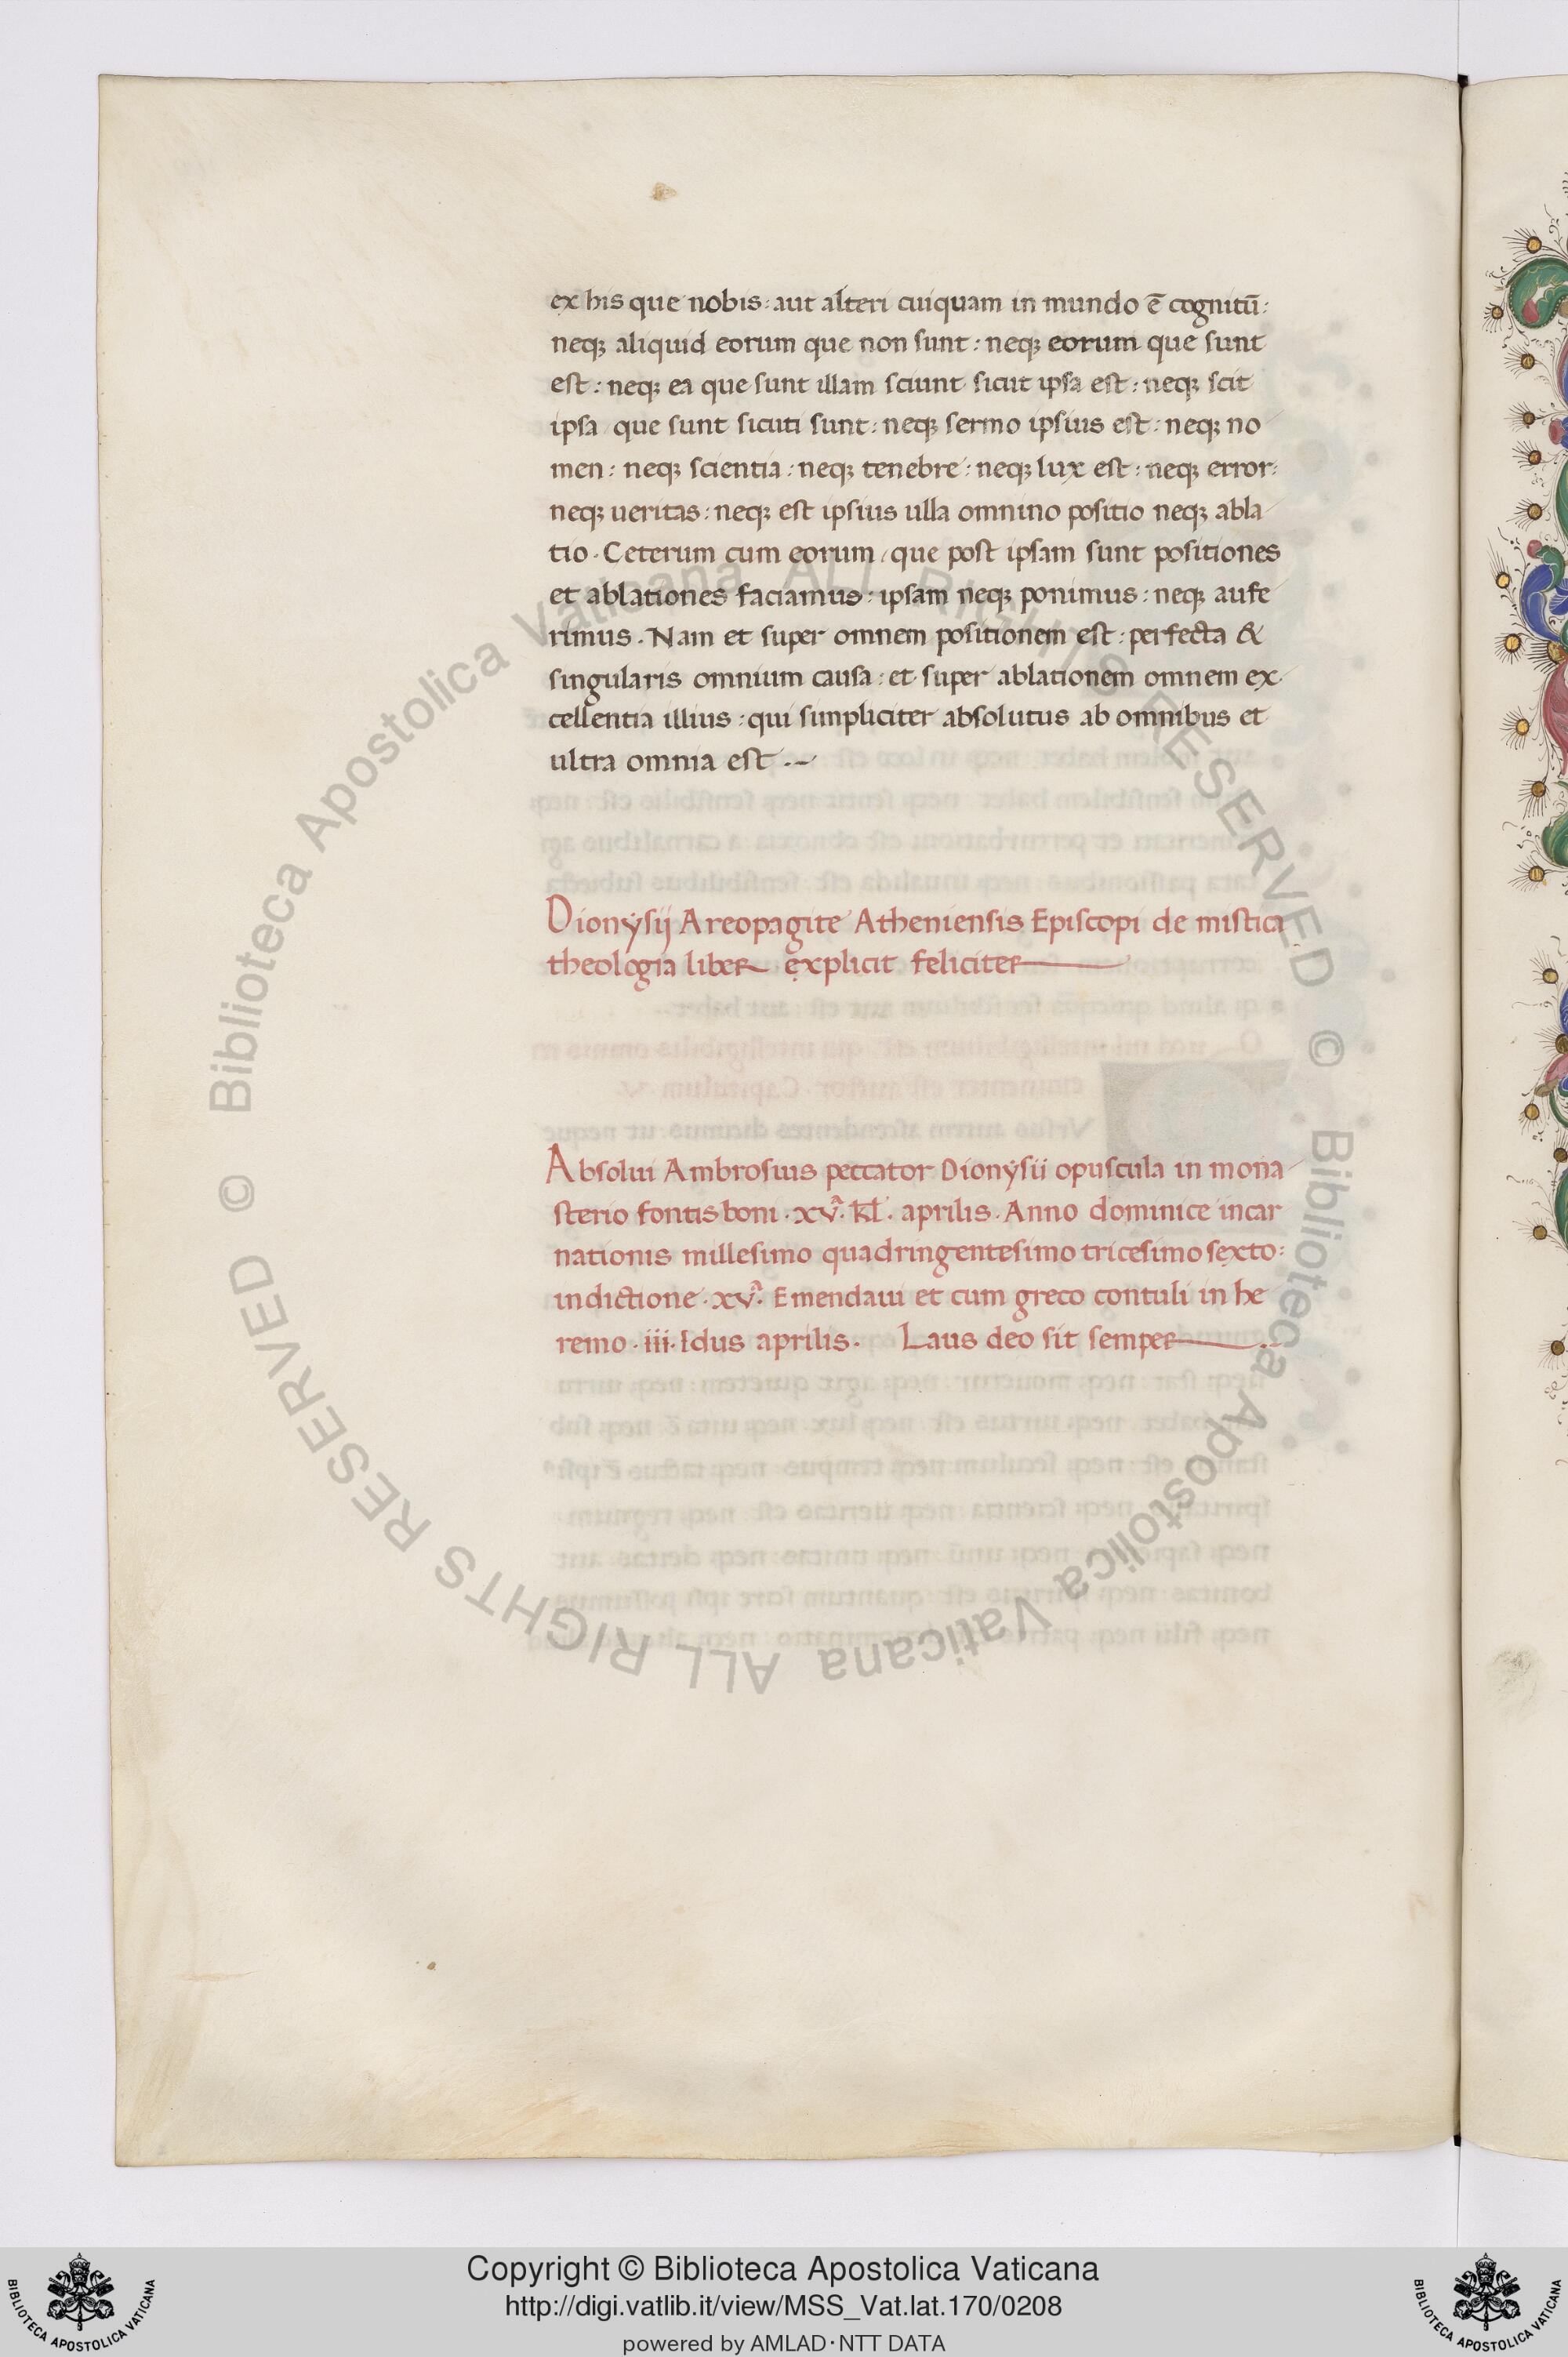 ex his que nobis: aut alteri cuiquam in mundo ē cognitū:
neqꝫ aliquid eorum que non sunt: neqꝫ eorum que sunt
est: neqꝫ ea que sunt illam sciunt sicut ipsa est: neqꝫ scit
ipsa que sunt sicuti sunt: neqꝫ sermo ipsius est: neqꝫ no
men: neqꝫ scientia: neqꝫ tenebre: neqꝫ lux est: neqꝫ error:
neqꝫ ueritas: neqꝫ est ipsius ulla omnino positio neqꝫ abla
tio. Ceterum cum eorum que post ipsam sunt positiones
et ablationes faciamus: ipsam neqꝫ ponimus: neqꝫ aufe
rimus. Nam et super omnem positionem est: perfecta &
singularis omnium causa: et super ablationem omnem ex
cellentia illius: qui simpliciter absolutus ab omnibus et
ultra omnia est.~
Dionẏsij Areopagite Atheniensis Episcopi de mistica
theologia liber explicit feliciter
Absolui Ambrosius peccator Dionẏsii opuscula in mona
sterio fontis boni .xv.ª kl. aprilis. Anno dominice incar
nationis millesimo quadringentesimo tricesimo sexto:
indictione .xv.ª Emendaui et cum greco contuli in he
remo .iii. Idus aprilis. Laus deo sit semper
© Biblioteca Apostolica Vaticana ALL RIGHTS RESERVED © Biblioteca Apostolica Vaticana ALL RIGHTS RESERVED
Copyright © Biblioteca Apostolica Vaticana
http://digi.vatlib.it/view/MSS_Vat.lat.170/0208
powered by AMLAD·NTT DATA
BIBLIOTECA APOSTOLICA VATICANA
BIBLIOTECA APOSTOLICA VATICANA